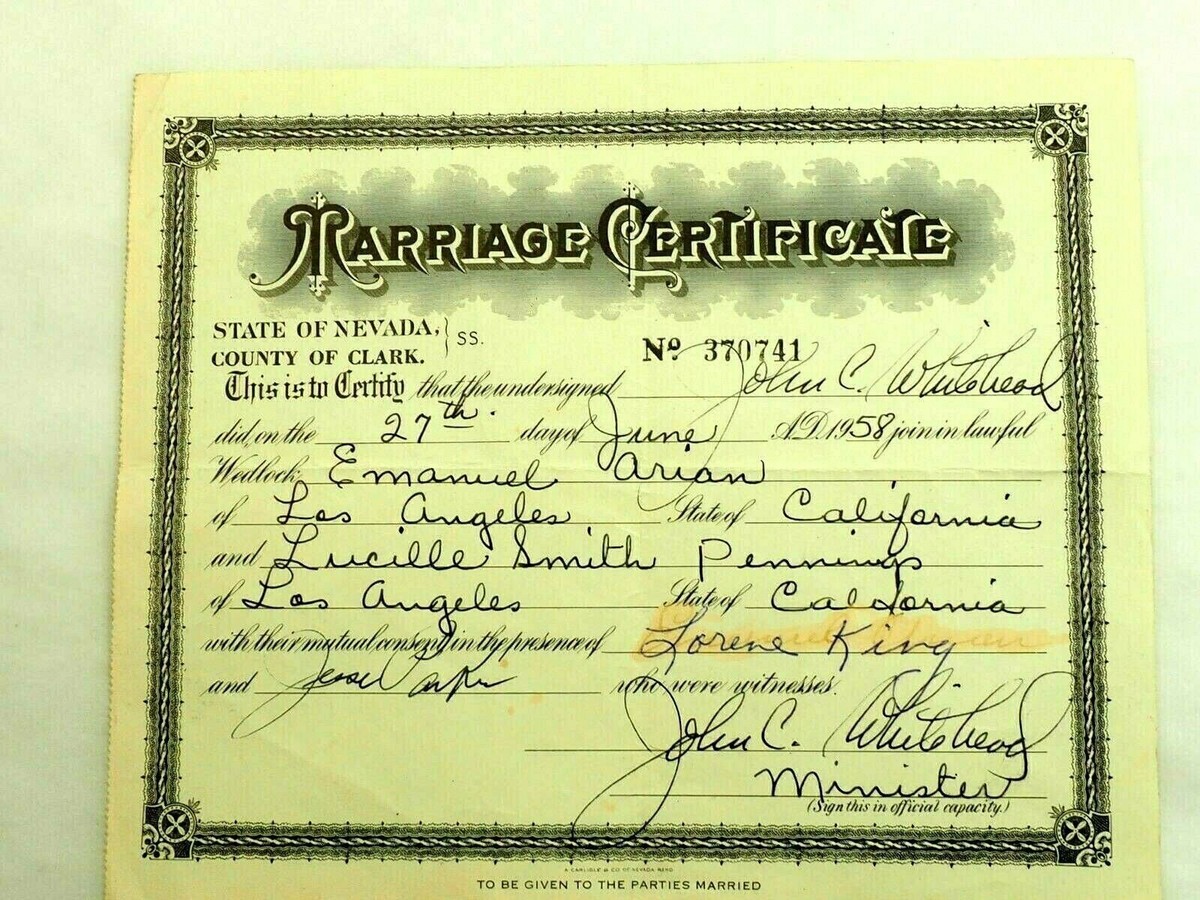 MARRIAGE CERTIFICATE
STATE OF NEVADA, } SS.
COUNTY OF CLARK. Nº 370741
This is to Certify that the undersigned John C. Whitehead
did, on the 27th. day of June A.D. 1958 join in lawful
Wedlock, Emanuel Arian
of Los Angeles State of California
and Lucille Smith Pennings
of Los Angeles State of California
with their mutual consent in the presence of Lorene King
and Jesse who were witnesses.
John C. Whitehead
Minister
(Sign this in official capacity.)
A CARLISLE & CO OF NEVADA RENO
TO BE GIVEN TO THE PARTIES MARRIED